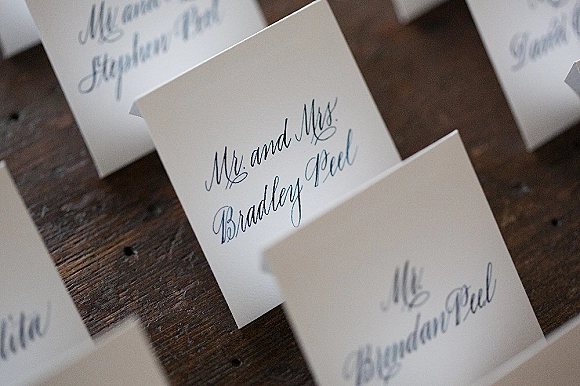 Mr. and
Stephen Peel
Mr. and Mrs.
Bradley Peel
Mr.
Brendan Peel
David
lita